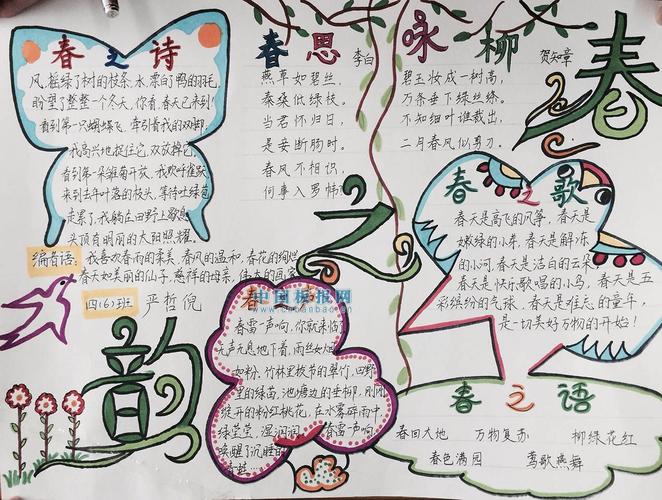 春之诗
风,摇绿了树的枝条,水,漂白了鸭的羽毛,
盼望了整整一个冬天,你看,春天已来到!
看到第一只蝴蝶飞,牵引着我的双脚,
我高兴地捉住它,又放掉它。
看到第一朵雏菊开放,我欢呼雀跃
来到去年叶落的枝头,等待吐绿苞
走累了,我躺在田野上歇息
头顶有明丽的太阳照耀。
编者语:
我喜欢春雨的柔美、春风的温和、春花的绚烂
春天如美丽的仙子,慈祥的母亲,伟大的画家
四(6)班
严哲倪
春思
李白
燕草如碧丝,
秦桑低绿枝。
当君怀归日,
是妾断肠时。
春风不相识,
何事入罗帏?
咏柳
贺知章
碧玉妆成一树高,
万条垂下绿丝绦。
不知细叶谁裁出,
二月春风似剪刀。
春
之
韵
春之歌
春天是高飞的风筝,春天是
嫩绿的小草,春天是解冻
的小河,春天是洁白的云朵
春天是快乐歌唱的小鸟,春天是五
彩缤纷的气球,春天是难忘的童年,
是一切美好万物的开始!
春
中国板报网
www.cnbanbao.cn
春雷一声响,你就来临了
无声无息地下着,雨丝如烟
如粉,竹林里挺拔的翠竹,田野
里的绿苗,池塘边的垂柳,刚刚
绽开的粉红桃花,在水雾碎雨中
绿莹莹,湿润润。春雷一声响,
唤醒了沉睡的
春之语
春回大地
万物复苏
柳绿花红
春色满园
莺歌燕舞